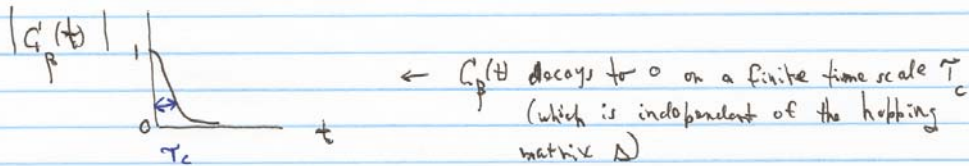 |C_β(t)|
1
← C_β(t) decays to 0 on a finite time scale τ_c
(which is independent of the hopping
matrix Δ)
0
t
τ_c